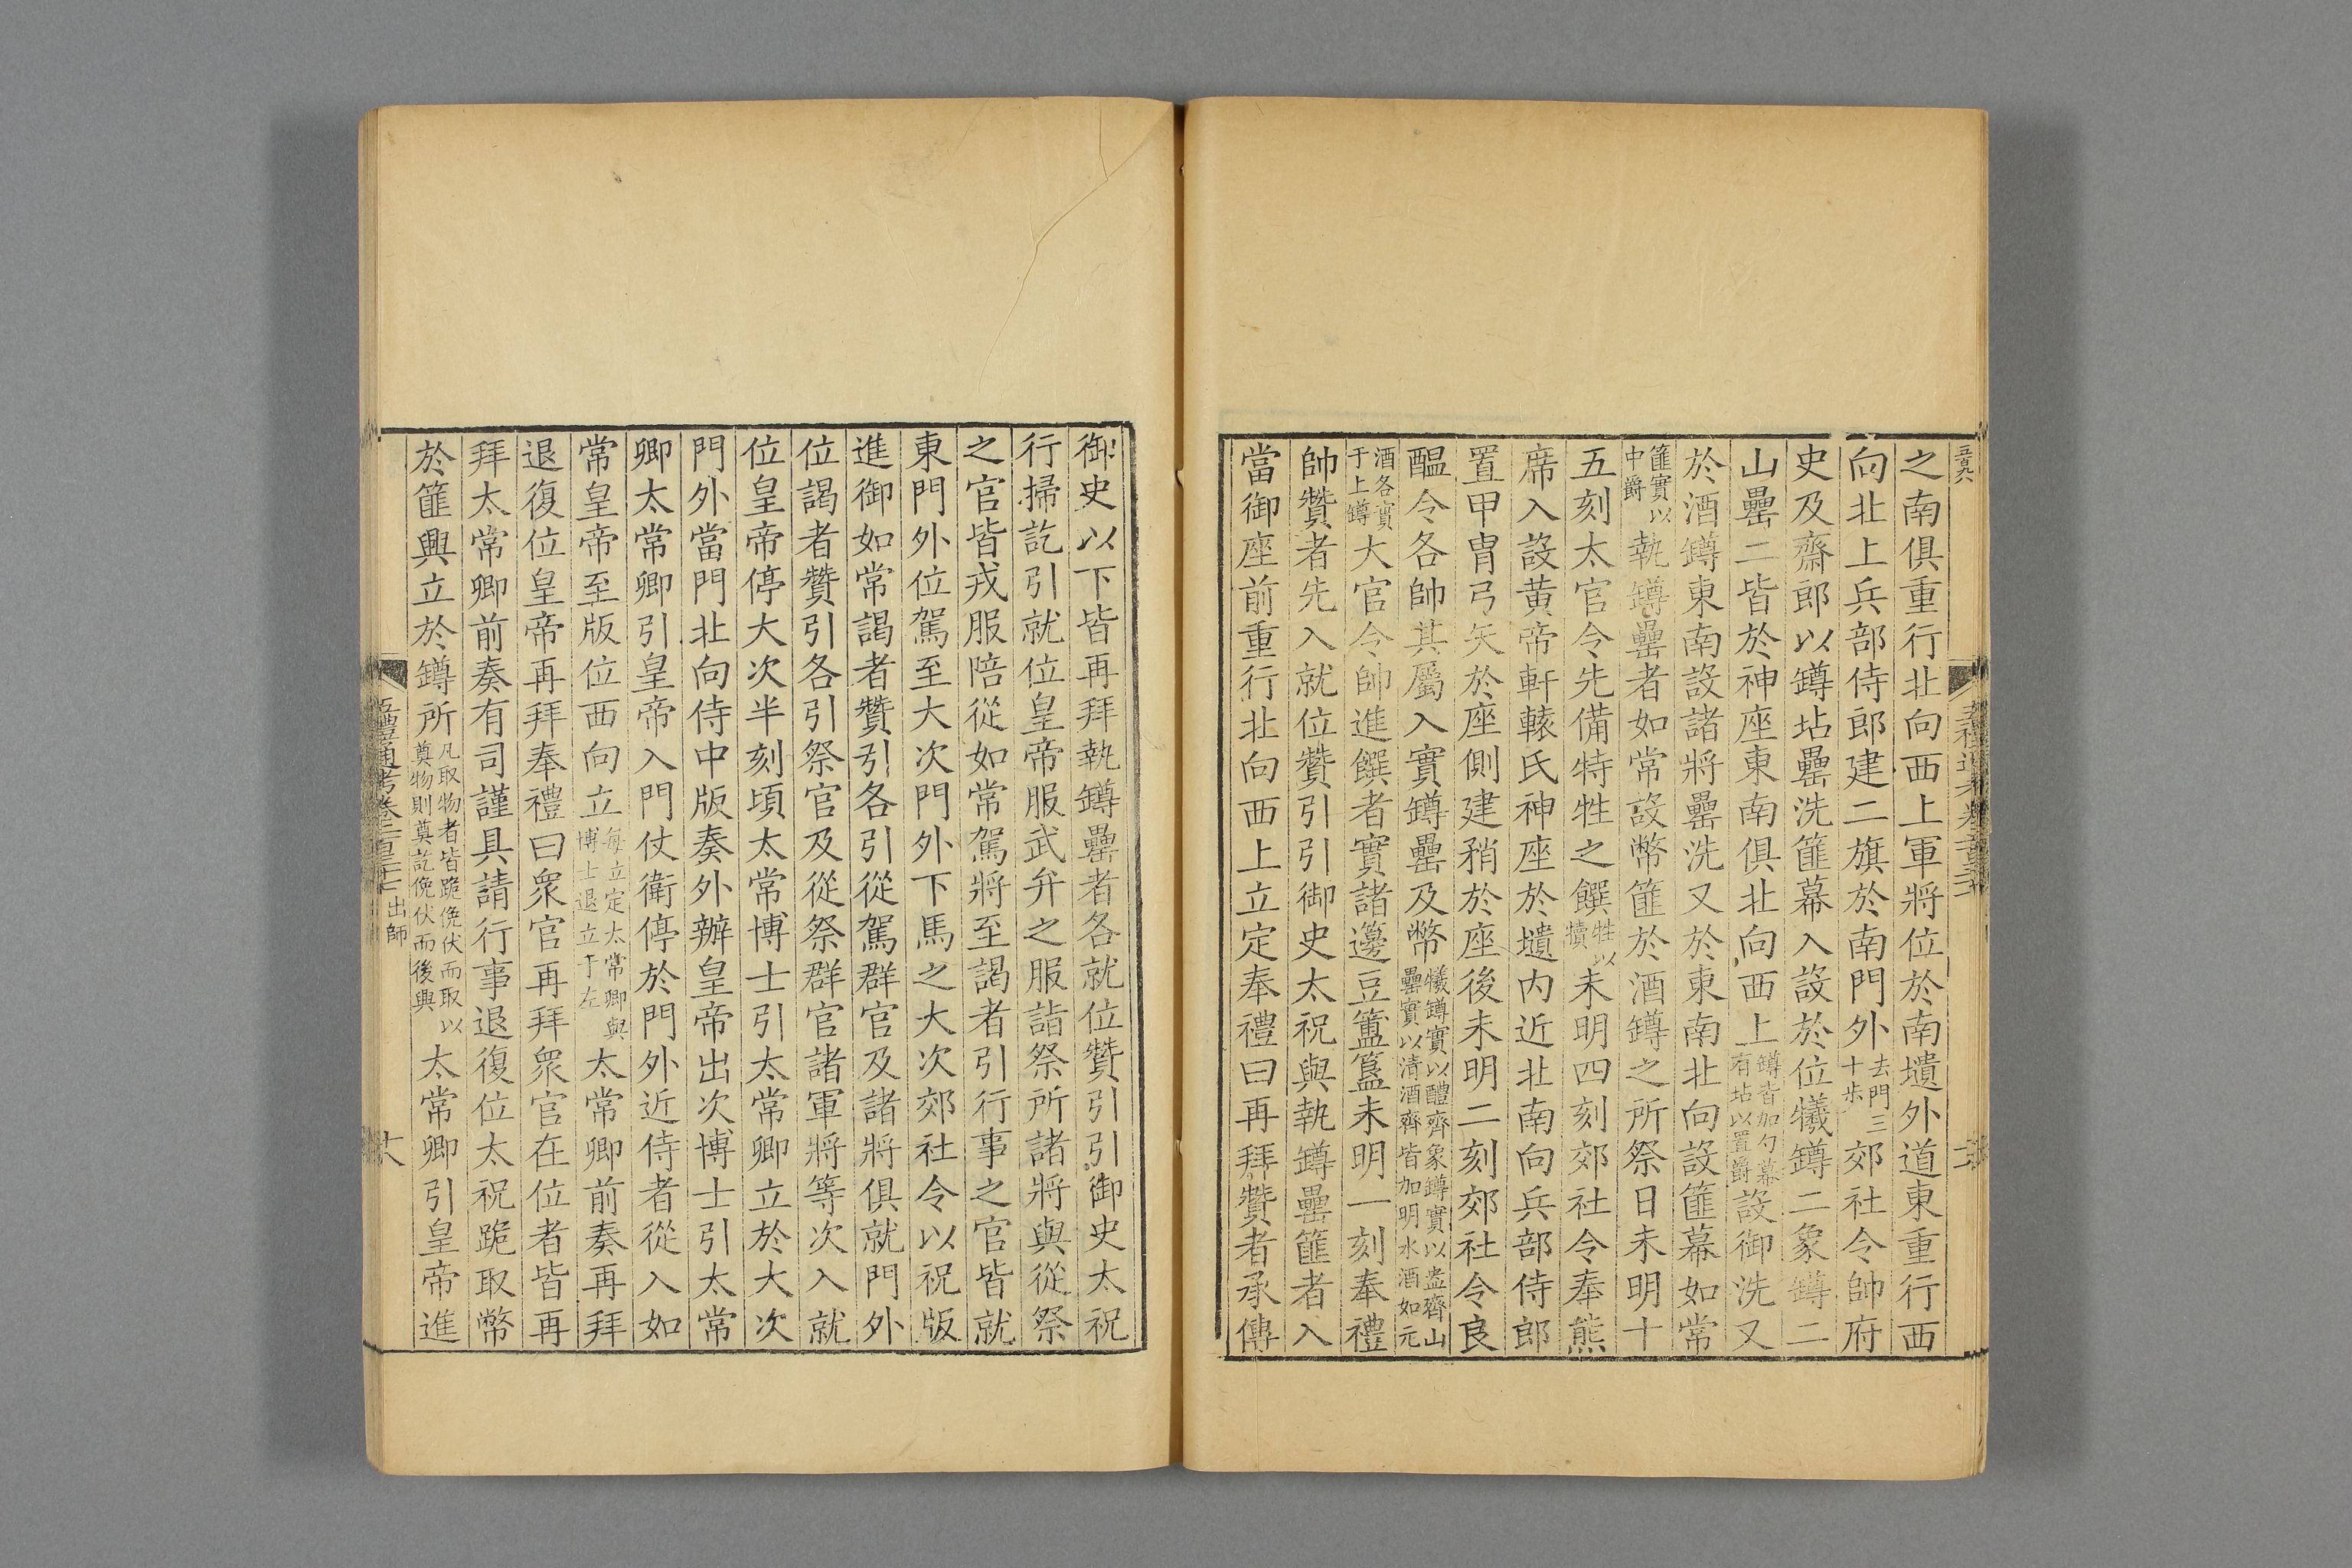 之南俱重行北向西上軍將位於南壝外道東重行西
向北上兵部侍郎建二旗於南門外去門三十步郊社令帥府
史及齋郎以罇坫罍洗篚幕入設於位犧罇二象罇二
山罍二皆於神座東南俱北向西上罇皆加勺幕有坫以置爵設御洗又
於酒罇東南設諸將罍洗又於東南北向設篚幕如常
篚實以中爵執罇罍者如常設幣篚於酒罇之所祭日未明十
五刻太官令先備特牲之饌牲以犢未明四刻郊社令奉熊
席入設黃帝軒轅氏神座於壝内近北南向兵部侍郎
置甲冑弓矢於座側建矟於座後未明二刻郊社令良
醞令各帥其屬入實罇罍及幣犧罇實以醴齊象罇實以盎齊山罍實以清酒齊皆加明水酒如元
酒各實于上罇大官令帥進饌者實諸籩豆簠簋未明一刻奉禮
帥贊者先入就位贊引引御史太祝與執罇罍篚者入
當御座前重行北向西上立定奉禮曰再拜贊者承傳
御史以下皆再拜執罇罍者各就位贊引引御史太祝
行掃訖引就位皇帝服武弁之服詣祭所諸將與從祭
之官皆戎服陪從如常駕將至謁者引行事之官皆就
東門外位駕至大次門外下馬之大次郊社令以祝版
進御如常謁者贊引各引從駕群官及諸將俱就門外
位謁者贊引各引祭官及從祭群官諸軍將等次入就
位皇帝停大次半刻頃太常博士引太常卿立於大次
門外當門北向侍中版奏外辦皇帝出次博士引太常
卿太常卿引皇帝入門仗衛停於門外近侍者從入如
常皇帝至版位西向立每立定太常卿與博士退立于左太常卿前奏再拜
退復位皇帝再拜奉禮曰衆官再拜衆官在位者皆再
拜太常卿前奏有司謹具請行事退復位太祝跪取幣
於篚興立於罇所凡取物者皆跪俛伏而取以奠物則奠訖俛伏而後興太常卿引皇帝進
五禮通考卷二百三十七 出師